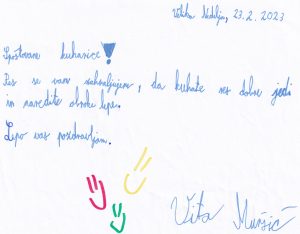 Velika Nedelja, 23.2.2023
Spoštovane kuharice!
Res se vam zahvaljujem, da kuhate res dobre jedi
in naredite obroke lepe.
Lepo vas pozdravljam.
Vita Muršič